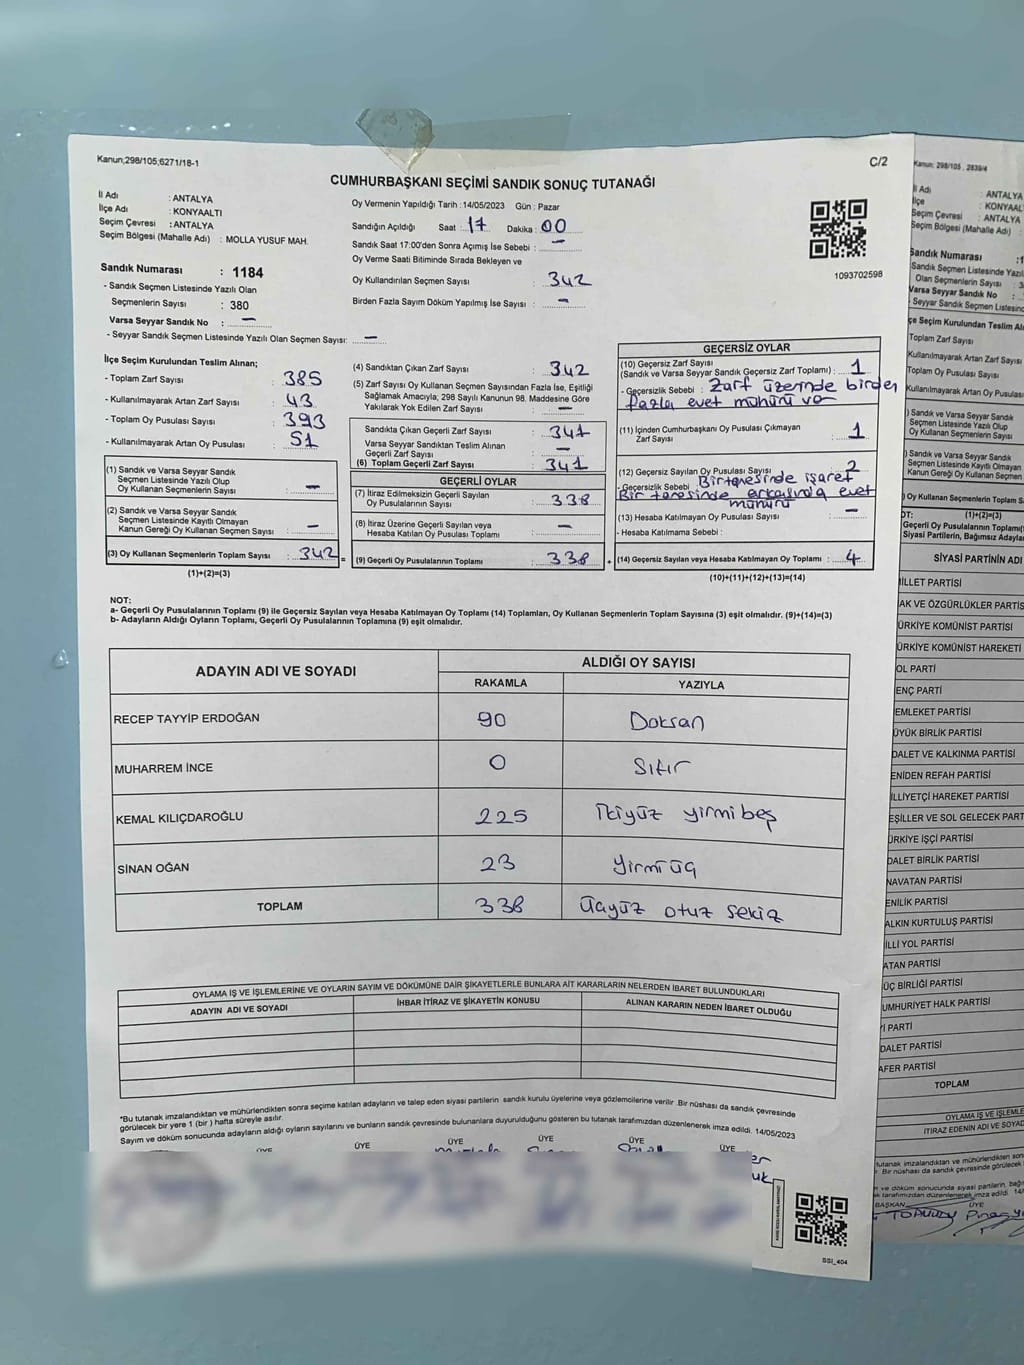 Kanun;298/105;6271/18-1
C/2
CUMHURBAŞKANI SEÇİMİ SANDIK SONUÇ TUTANAĞI
İl Adı : ANTALYA
İlçe Adı : KONYAALTI
Seçim Çevresi : ANTALYA
Seçim Bölgesi (Mahalle Adı) : MOLLA YUSUF MAH.
Sandık Numarası : 1184
- Sandık Seçmen Listesinde Yazılı Olan
Seçmenlerin Sayısı : 380
Varsa Seyyar Sandık No : —
- Seyyar Sandık Seçmen Listesinde Yazılı Olan Seçmen Sayısı: —
Oy Vermenin Yapıldığı Tarih :14/05/2023 Gün : Pazar
Sandığın Açıldığı Saat : 17 Dakika : 00
Sandık Saat 17:00'den Sonra Açımış İse Sebebi : —
Oy Verme Saati Bitiminde Sırada Bekleyen ve
Oy Kullandırılan Seçmen Sayısı : 342
Birden Fazla Sayım Döküm Yapılmış İse Sayısı : —
1093702598
İlçe Seçim Kurulundan Teslim Alınan;
- Toplam Zarf Sayısı : 385
- Kullanılmayarak Artan Zarf Sayısı : 43
- Toplam Oy Pusulası Sayısı : 393
- Kullanılmayarak Artan Oy Pusulası : 51
(1) Sandık ve Varsa Seyyar Sandık
Seçmen Listesinde Yazılı Olup
Oy Kullanan Seçmenlerin Sayısı : —
(2) Sandık ve Varsa Seyyar Sandık
Seçmen Listesinde Kayıtlı Olmayan
Kanun Gereği Oy Kullanan Seçmen Sayısı : —
(3) Oy Kullanan Seçmenlerin Toplam Sayısı : 342 =
(1)+(2)=(3)
(4) Sandıktan Çıkan Zarf Sayısı : 342
(5) Zarf Sayısı Oy Kullanan Seçmen Sayısından Fazla İse, Eşitliği
Sağlamak Amacıyla, 298 Sayılı Kanunun 98. Maddesine Göre
Yakılarak Yok Edilen Zarf Sayısı : —
Sandıkta Çıkan Geçerli Zarf Sayısı : 341
Varsa Seyyar Sandıktan Teslim Alınan
Geçerli Zarf Sayısı : —
(6) Toplam Geçerli Zarf Sayısı : 341
GEÇERLİ OYLAR
(7) İtiraz Edilmeksizin Geçerli Sayılan
Oy Pusulalarının Sayısı : 338
(8) İtiraz Üzerine Geçerli Sayılan veya
Hesaba Katılan Oy Pusulaları Toplamı : —
(9) Geçerli Oy Pusulalarının Toplamı : 338 +
GEÇERSİZ OYLAR
(10) Geçersiz Zarf Sayısı
(Sandık ve Varsa Seyyar Sandık Geçersiz Zarf Toplamı) : 1
- Geçersizlik Sebebi : Zarf üzerinde birden
fazla evet mührü var
(11) İçinden Cumhurbaşkanı Oy Pusulası Çıkmayan
Zarf Sayısı : 1
(12) Geçersiz Sayılan Oy Pusulası Sayısı : 2
- Geçersizlik Sebebi : Bir tanesinde işaret
Bir tanesinde arkasında evet
mührü
(13) Hesaba Katılmayan Oy Pusulası Sayısı : —
- Hesaba Katılmama Sebebi :
(14) Geçersiz Sayılan veya Hesaba Katılmayan Oy Toplamı : 4
(10)+(11)+(12)+(13)=(14)
NOT:
a- Geçerli Oy Pusulalarının Toplamı (9) ile Geçersiz Sayılan veya Hesaba Katılmayan Oy Toplamı (14) Toplamları, Oy Kullanan Seçmenlerin Toplam Sayısına (3) eşit olmalıdır. (9)+(14)=(3)
b- Adayların Aldığı Oyların Toplamı, Geçerli Oy Pusulalarının Toplamına (9) eşit olmalıdır.
ADAYIN ADI VE SOYADI ALDIĞI OY SAYISI
RAKAMLA YAZIYLA
RECEP TAYYİP ERDOĞAN 90 Doksan
MUHARREM İNCE 0 Sıfır
KEMAL KILIÇDAROĞLU 225 İkiyüz yirmibeş
SİNAN OĞAN 23 Yirmi üç
TOPLAM 338 Üçyüz otuz sekiz
OYLAMA İŞ VE İŞLEMLERİNE VE OYLARIN SAYIM VE DÖKÜMÜNE DAİR ŞİKAYETLERLE BUNLARA AİT KARARLARIN NELERDEN İBARET BULUNDUKLARI
ADAYIN ADI VE SOYADI İHBAR İTİRAZ VE ŞİKAYETİN KONUSU ALINAN KARARIN NEDEN İBARET OLDUĞU
*Bu tutanak imzalandıktan ve mühürlendikten sonra seçime katılan adayların ve talep eden siyasi partilerin sandık kurulu üyelerine veya gözlemcilerine verilir .Bir nüshası da sandık çevresinde
görülecek bir yere 1 (bir ) hafta süreyle asılır.
Sayım ve döküm sonucunda adayların aldığı oyların sayılarını ve bunların sandık çevresinde bulunanlara duyurulduğunu gösteren bu tutanak tarafımızdan düzenlenerek imza edildi. 14/05/2023
ÜYE ÜYE ÜYE ÜYE ÜYE ÜYE
SSI_404
Kanun: 298/105 , 2839/4
İl Adı : ANTALYA
İlçe : KONYAAL
Seçim Çevresi : ANTALYA
Seçim Bölgesi (Mahalle Adı)
Sandık Numarası
Sandık Seçmen Listesinde Yazılı
Olan Seçmenlerin Sayısı
Varsa Seyyar Sandık No
- Seyyar Sandık Seçmen Listesind
İlçe Seçim Kurulundan Teslim Alı
Toplam Zarf Sayısı
Kullanılmayarak Artan Zarf Sayısı
Toplam Oy Pusulası Sayısı
Kullanılmayarak Artan Oy Pusulası
) Sandık ve Varsa Seyyar Sandık
Seçmen Listesinde Yazılı Olup
Oy Kullanan Seçmenlerin Sayısı
) Sandık ve Varsa Seyyar Sandık
Seçmen Listesinde Kayıtlı Olmayan
Kanun Gereği Oy Kullanan Seçmen
) Oy Kullanan Seçmenlerin Toplam S
OT: (1)+(2)=(3)
Geçerli Oy Pusulalarının Toplamı(
Siyasi Partilerin, Bağımsız Adayla
SİYASİ PARTİNİN ADI
İLLET PARTİSİ
AK VE ÖZGÜRLÜKLER PARTİS
ÜRKİYE KOMÜNİST PARTİSİ
ÜRKİYE KOMÜNİST HAREKETİ
OL PARTİ
ENÇ PARTİ
EMLEKET PARTİSİ
ÜYÜK BİRLİK PARTİSİ
DALET VE KALKINMA PARTİSİ
ENİDEN REFAH PARTİSİ
İLLİYETÇİ HAREKET PARTİSİ
EŞİLLER VE SOL GELECEK PART
ÜRKİYE İŞÇİ PARTİSİ
DALET BİRLİK PARTİSİ
NAVATAN PARTİSİ
ENİLİK PARTİSİ
ALKIN KURTULUŞ PARTİSİ
İLLİ YOL PARTİSİ
ATAN PARTİSİ
ÜÇ BİRLİĞİ PARTİSİ
UMHURİYET HALK PARTİSİ
Yİ PARTİ
DALET PARTİSİ
AFER PARTİSİ
TOPLAM
OYLAMA İŞ VE İŞLEMLE
İTİRAZ EDENİN ADI VE SOYAD
BAŞKAN ÜYE